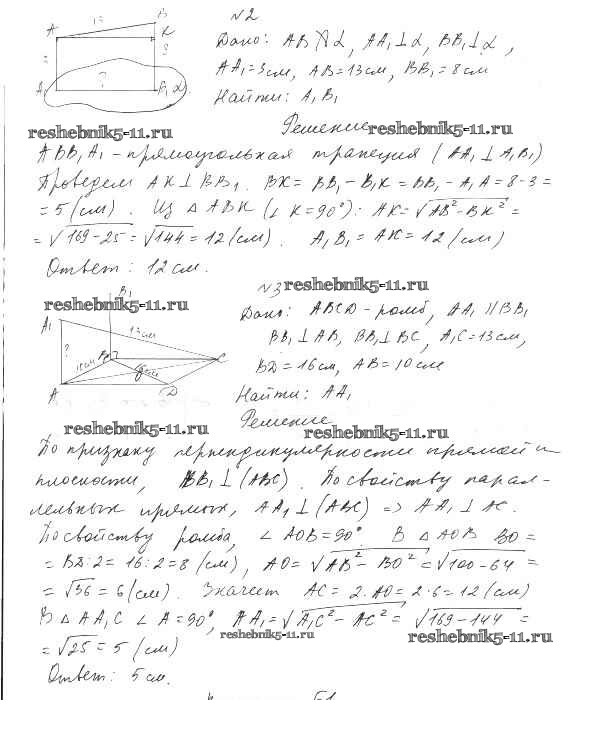 №2
A 13 B K
3 8
A₁ ? B₁ α
Дано: AB ∦ α, AA₁ ⊥ α, BB₁ ⊥ α,
AA₁ = 3 см, AB = 13 см, BB₁ = 8 см
Найти: A₁B₁
reshebnik5-11.ru Решение reshebnik5-11.ru
ABB₁A₁ – прямоугольная трапеция (AA₁ ⊥ A₁B₁)
Проведем AK ⊥ BB₁. BK = BB₁ – B₁K = BB₁ – A₁A = 8 – 3 =
= 5 (см). Из △ABK (∠K = 90°): AK = √AB² – BK² =
= √169 – 25 = √144 = 12 (см). A₁B₁ = AK = 12 (см)
Ответ: 12 см.
№3 reshebnik5-11.ru
reshebnik5-11.ru
B₁
A₁ 13 см
? 10 см B C
A D
Дано: ABCD – ромб, AA₁ ∥ BB₁
BB₁ ⊥ AB, BB₁ ⊥ BC, A₁C = 13 см,
BD = 16 см, AB = 10 см
Найти: AA₁
Решение
reshebnik5-11.ru reshebnik5-11.ru
По признаку перпендикулярности прямой и
плоскости, BB₁ ⊥ (ABC). По свойству парал-
лельных прямых, AA₁ ⊥ (ABC) => AA₁ ⊥ AC.
По свойству ромба, ∠AOB = 90°. В △AOB BO =
= BD : 2 = 16 : 2 = 8 (см), AO = √AB² – BO² = √100 – 64 =
= √36 = 6 (см). Значит AC = 2·AO = 2·6 = 12 (см)
В △AA₁C ∠A = 90°, AA₁ = √A₁C² – AC² = √169 – 144 =
reshebnik5-11.ru reshebnik5-11.ru
= √25 = 5 (см)
Ответ: 5 см.